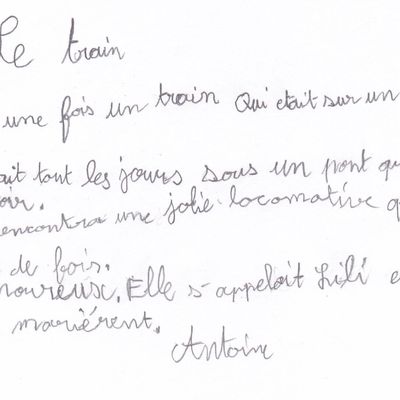 Le train
une fois un train Qui etait sur un
ait tout les jours sous un pont qu
oir.
encontra une jolie locomative q
de fois.
moureux. Elle s'appelait Lili e
marièrent.
Antoine